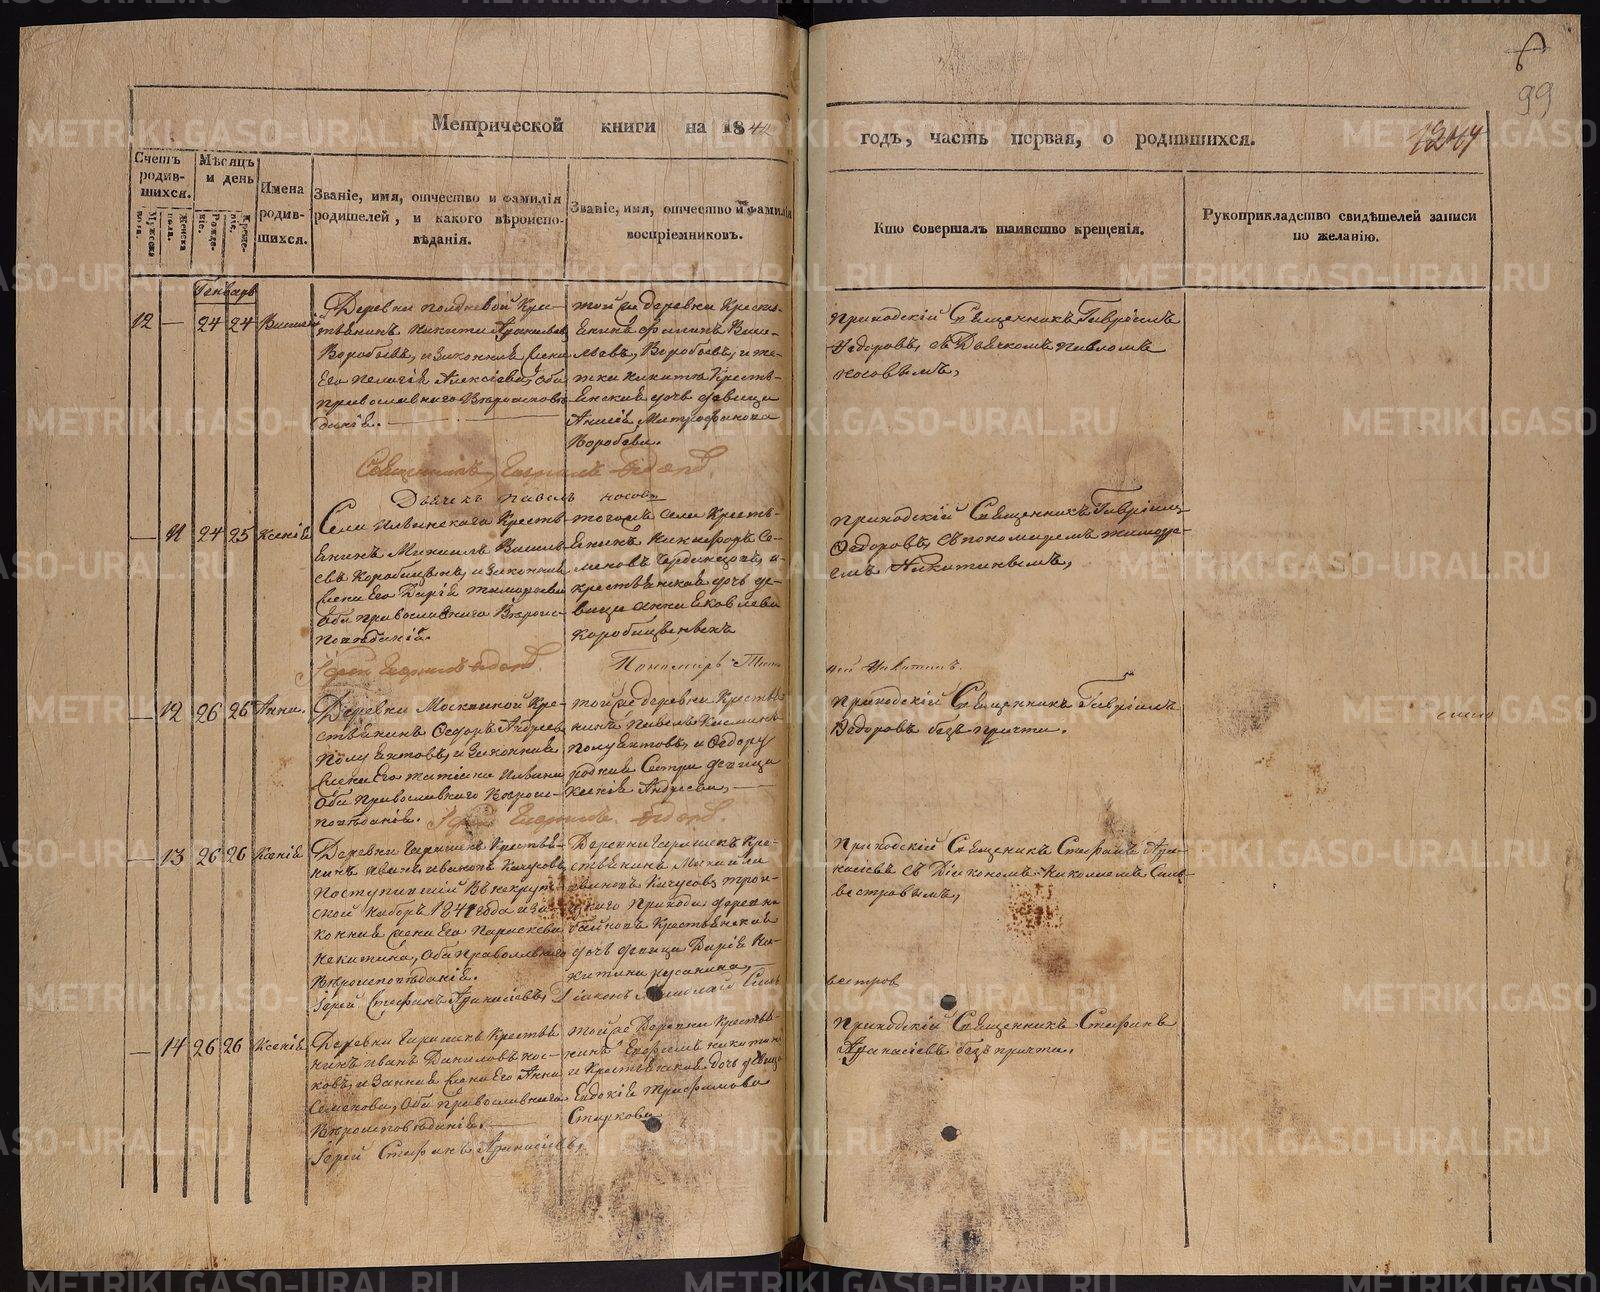 99
Метрической книги на 1842
годъ, часть первая, о родившихся.
Счетъ родив-шихся.
Мужеска пола.
Женска пола.
Мѣсяцъ и день
Рожде-нія.
Креще-нія.
Имена родив-шихся.
Званіе, имя, отчество и фамилія
родителей, и какого вѣроиспо-
вѣданія.
Званіе, имя, отчество и фамилія
воспріемниковъ.
Кто совершалъ таинство крещенія.
Рукоприкладство свидѣтелей записи
по желанію.
Генварь
12 — 24 24 Василій
Деревни полдневой Кре-
стьянинъ Никита
Воробьевъ, и законная жена
его Пелагія Алексіева, оба
православнаго вѣроисповѣ-
данія.
той же деревни Кресть-
янинъ Филипъ Василь-
льевъ, Воробьевъ, и
Кресть-
янская дочь девица
Анисія Митрофанова
Воробьева.
Приходскій Священникъ Гавріилъ
Ѳедоровъ, съ Дьячкомъ Павломъ
Носовымъ,
Священникъ Гавріилъ Ѳедоров.
Дьячекъ Павелъ Носовъ
— 11 24 25 Ксенія
Села Ильинскаго Кресть-
янинъ Михаилъ Василь-
евъ Коробицынъ, и законная
жена его Дарія Тимофеева
оба православнаго вѣроис-
повѣданія.
тогожъ села Кресть-
янинъ Никифоръ Се-
меновъ и
крестьянская дочь де-
вица Анна Яковлева
Коробицыныхъ
Приходскій Священникъ Гавріилъ
Ѳедоровъ, съ пономаремъ Тимоѳе-
емъ Никитинымъ,
Іерей Гавріилъ Ѳедоров.
Пономарь Тимо
ѳей Никитинъ.
— 12 26 26 Анна.
Деревни Москвиной Кре-
стьянинъ Ѳедоръ Андреевъ
Полуяхтовъ, и законная
жена его Татіана Иванова
оба Православнаго вѣроис-
повѣданія.
той же деревни Крестья-
нинъ Павелъ Космин
Полуяхтовъ, и Ѳедору
родная сестра девица
Ксенія Андреева,
Приходскій Священникъ Гавріилъ
Ѳедоровъ безъ причта.
Іерей Гавріилъ Ѳедоров.
— 13 26 26 Ксенія
Деревни Гарашекъ Крестья-
нинъ Иванъ Ивановъ Качусовъ,
поступившій в рекрут-
ской наборъ 1841 года и за-
конная жена его Параскева
Никитина, оба православнаго
вѣроисповѣданія.
Деревни Гарашекъ Кре-
стьянинъ Михаилъ
Ивановъ Качусовъ, трои-
цкаго прихода деревни
Крестьянская
дочь девица Дарія Ни-
китина Русакина,
Приходскій Священникъ Стефанъ Аѳа-
насіевъ съ Діакономъ Николаемъ Силь-
вестровымъ,
Іерей Стефанъ Аѳанасіевъ, Діаконъ Николай Сель
вестров
— 14 26 26 Ксенія
Деревни Гарашекъ Крестья-
нинъ Иванъ Даниловъ Нос-
ковъ, и законная жена его Анна
Семенова, оба православнаго
вѣроисповѣданія.
той же деревни Крестья-
нинъ Ефремъ Никитин
и Крестьянская дочь девица
Евдокія Трофимова
Старкова
Приходскій Священникъ Стефанъ
Аѳанасіевъ безъ причта.
Іерей Стефанъ Аѳанасіевъ,
METRIKI.GASO-URAL.RU